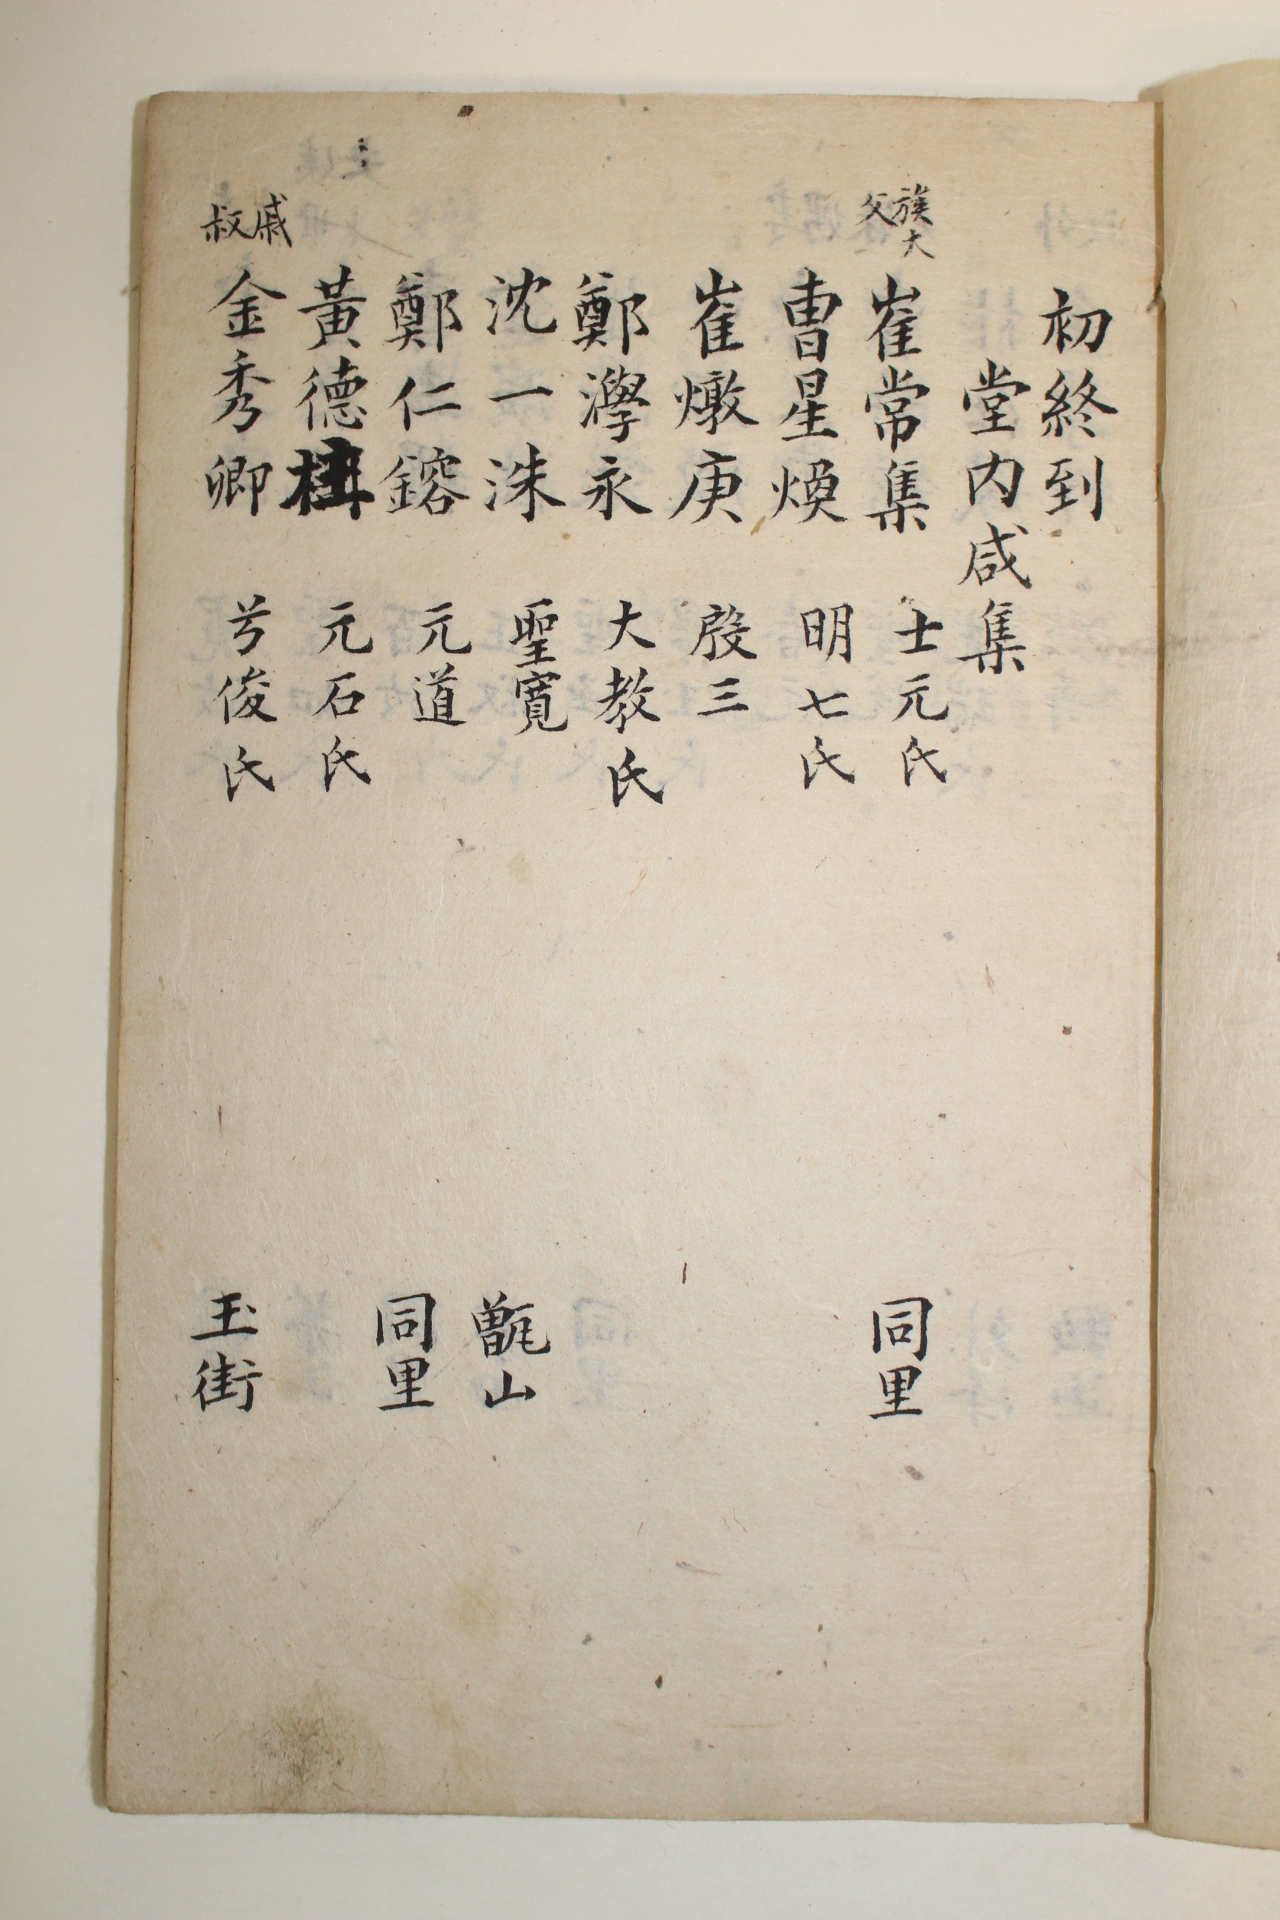 初終到
堂内咸集
族大父 崔常集 士元氏 同里
曺星煥 明七氏
崔燉庚 殷三
鄭㶅永 大教氏
沈一洙 聖寬 甑山
鄭仁鎔 元道 同里
黃德 元石氏
戚叔 金秀卿 兮俊氏 玉街